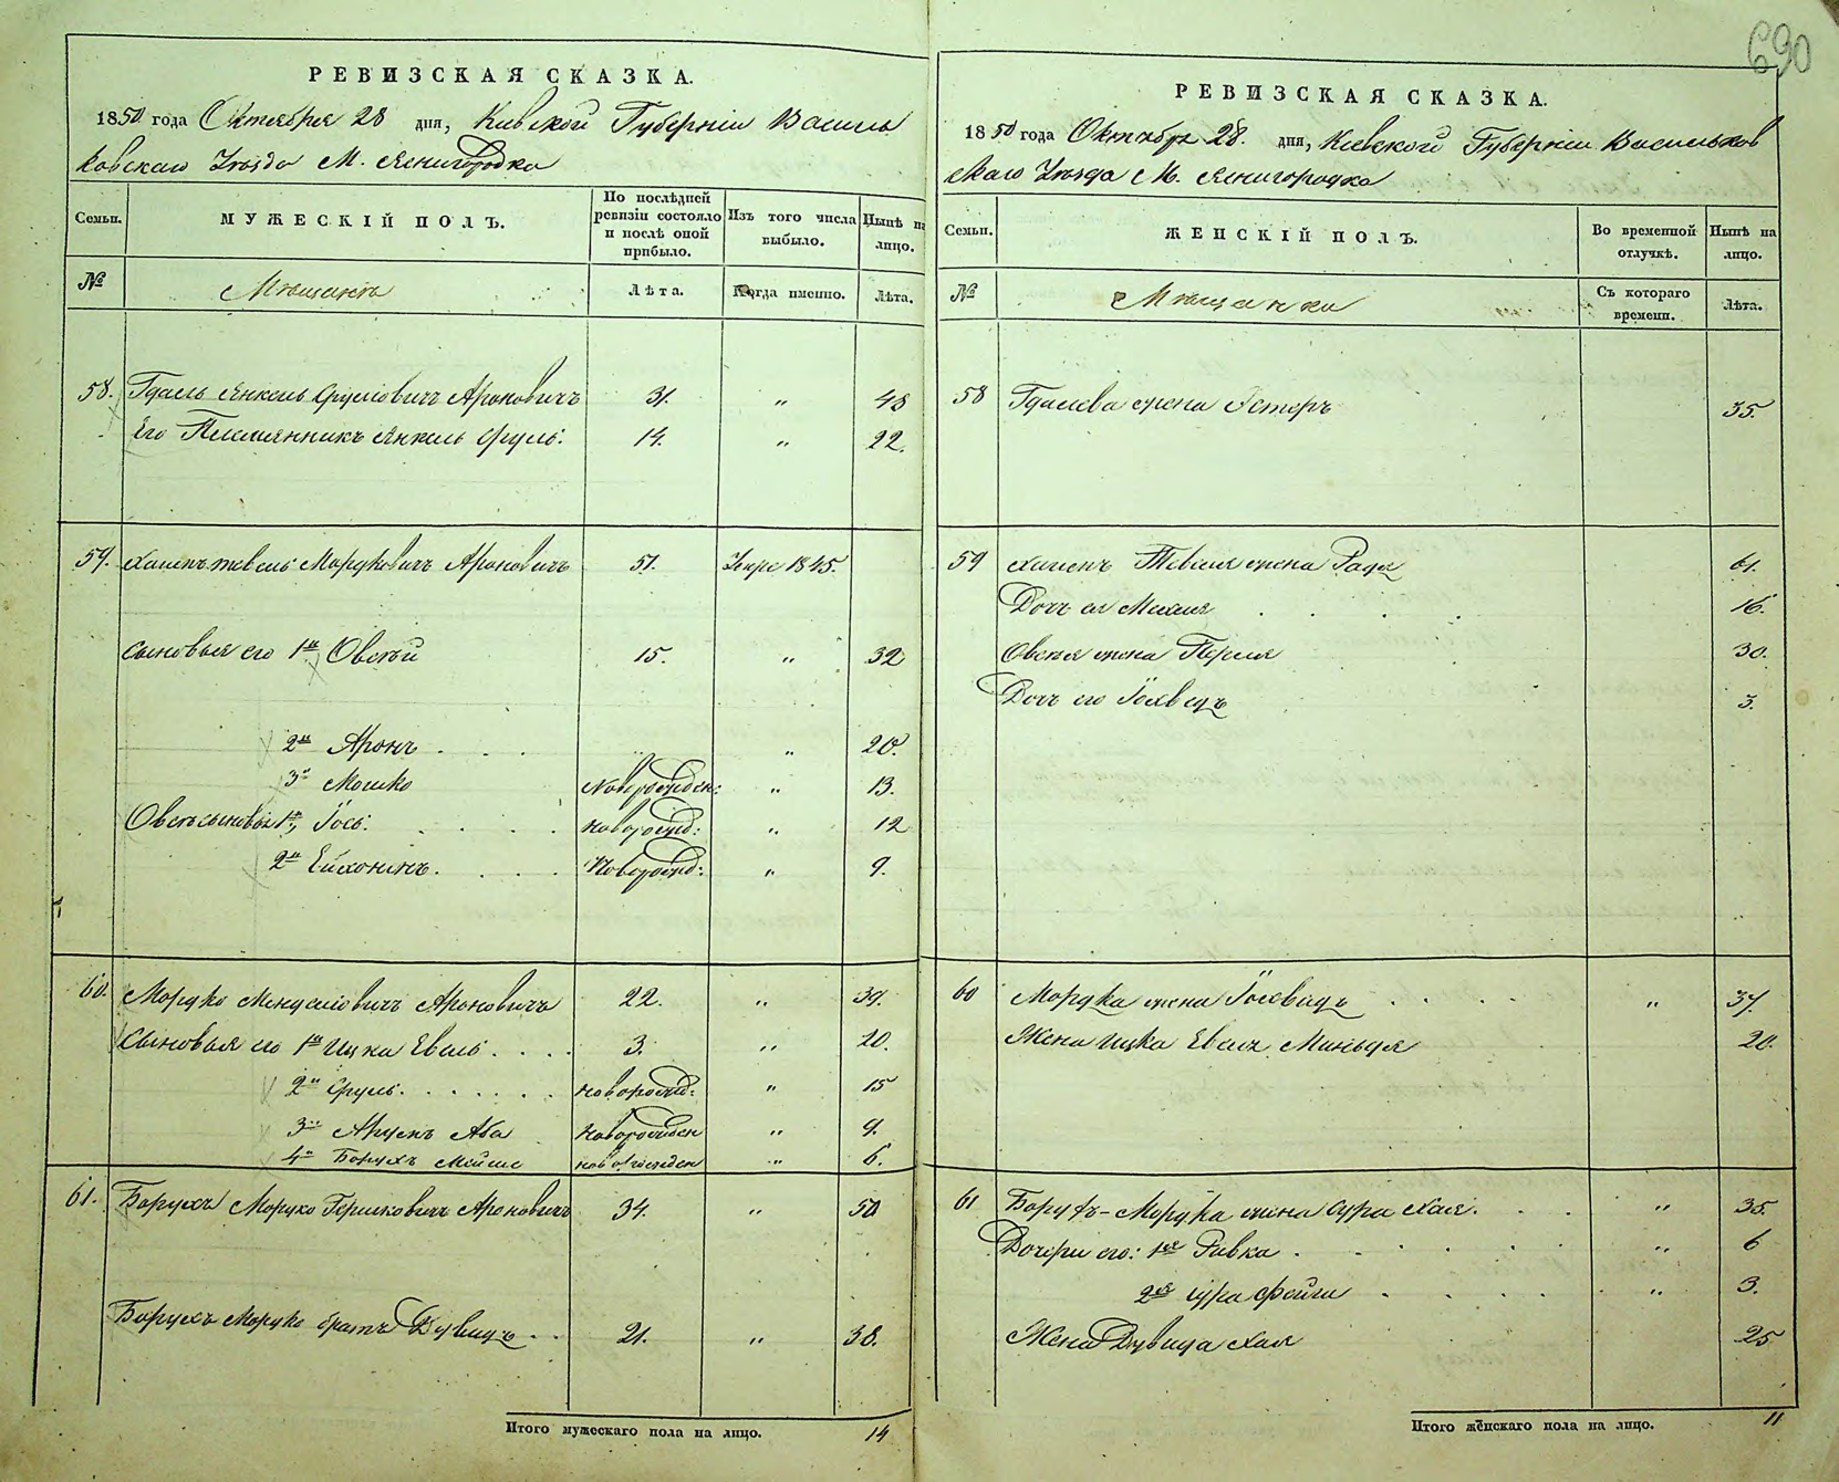 690
РЕВИЗСКАЯ СКАЗКА.
1850 года Октября 28 дня, Киевской Губерніи Василь
ковскаго Уѣзда М. Ясногородка
Семьи.
МУЖЕСКІЙ ПОЛЪ.
По послѣдней
ревизіи состояло
и послѣ оной
прибыло.
Изъ того числа
выбыло.
Нынѣ на
лицо.
№
Мѣщанъ
Лѣта.
Когда именно.
Лѣта.
58. Гдаль Янкель Сруліовичъ Ароновичъ 31. " 48
Его Племянникъ Янкель Сруль: 14. " 22.
59. Хаимъ тевель Мордковичъ Ароновичъ 51. Умре 1845.
сыновья его 1й Овсѣй 15. " 32
2й Аронъ . . . " 20.
3й Мошко Новорожден: " 13.
Овсѣя сыновья 1й Іось . . . . новорожд: " 12
2й Ейхонинъ . . . . Новорожд: " 9.
60. Мордко Менделіовичъ Ароновичъ 22. " 39.
Сыновья его 1й Ицка Евель . . . . 3. " 20.
2й Сруль . . . . . . новорожд: " 15
3й Аба Новорожден " 9.
4й Борухъ Мойше новорожден " 6.
61. Борухъ Мордко Гершковичъ Ароновичъ 34. " 50
Борухъ Мордко братъ Дувидъ . . 21. " 38.
Итого мужескаго пола на лицо. 14
РЕВИЗСКАЯ СКАЗКА.
1850 года Октября 28. дня, Кіевской Губерніи Васильков
скаго Уѣзда М. Ясногородка
Семьи.
ЖЕНСКІЙ ПОЛЪ.
Во временной
отлучкѣ.
Нынѣ на
лицо.
№
Мѣщанки
Съ котораго
времени.
Лѣта.
58 Гдалева жена Естеръ 35.
59 Хаимъ Тевеля жена Рада 61.
Дочь ея Михля . . . . 16.
Овсѣя жена Перля 30.
Дочь его Іохведъ 3.
60 Мордка жена Іохведъ . . . . " 37.
Жена Ицка Евеля Миньдля 20.
61 Борухъ-Мордка жена Сура Хая. . . " 35.
Дочери его: 1ая Ривка . . . . . . " 6
2ая Сура Фейга . . . . . " 3.
Жена Дувида Хая 25
Итого женскаго пола на лицо. 11